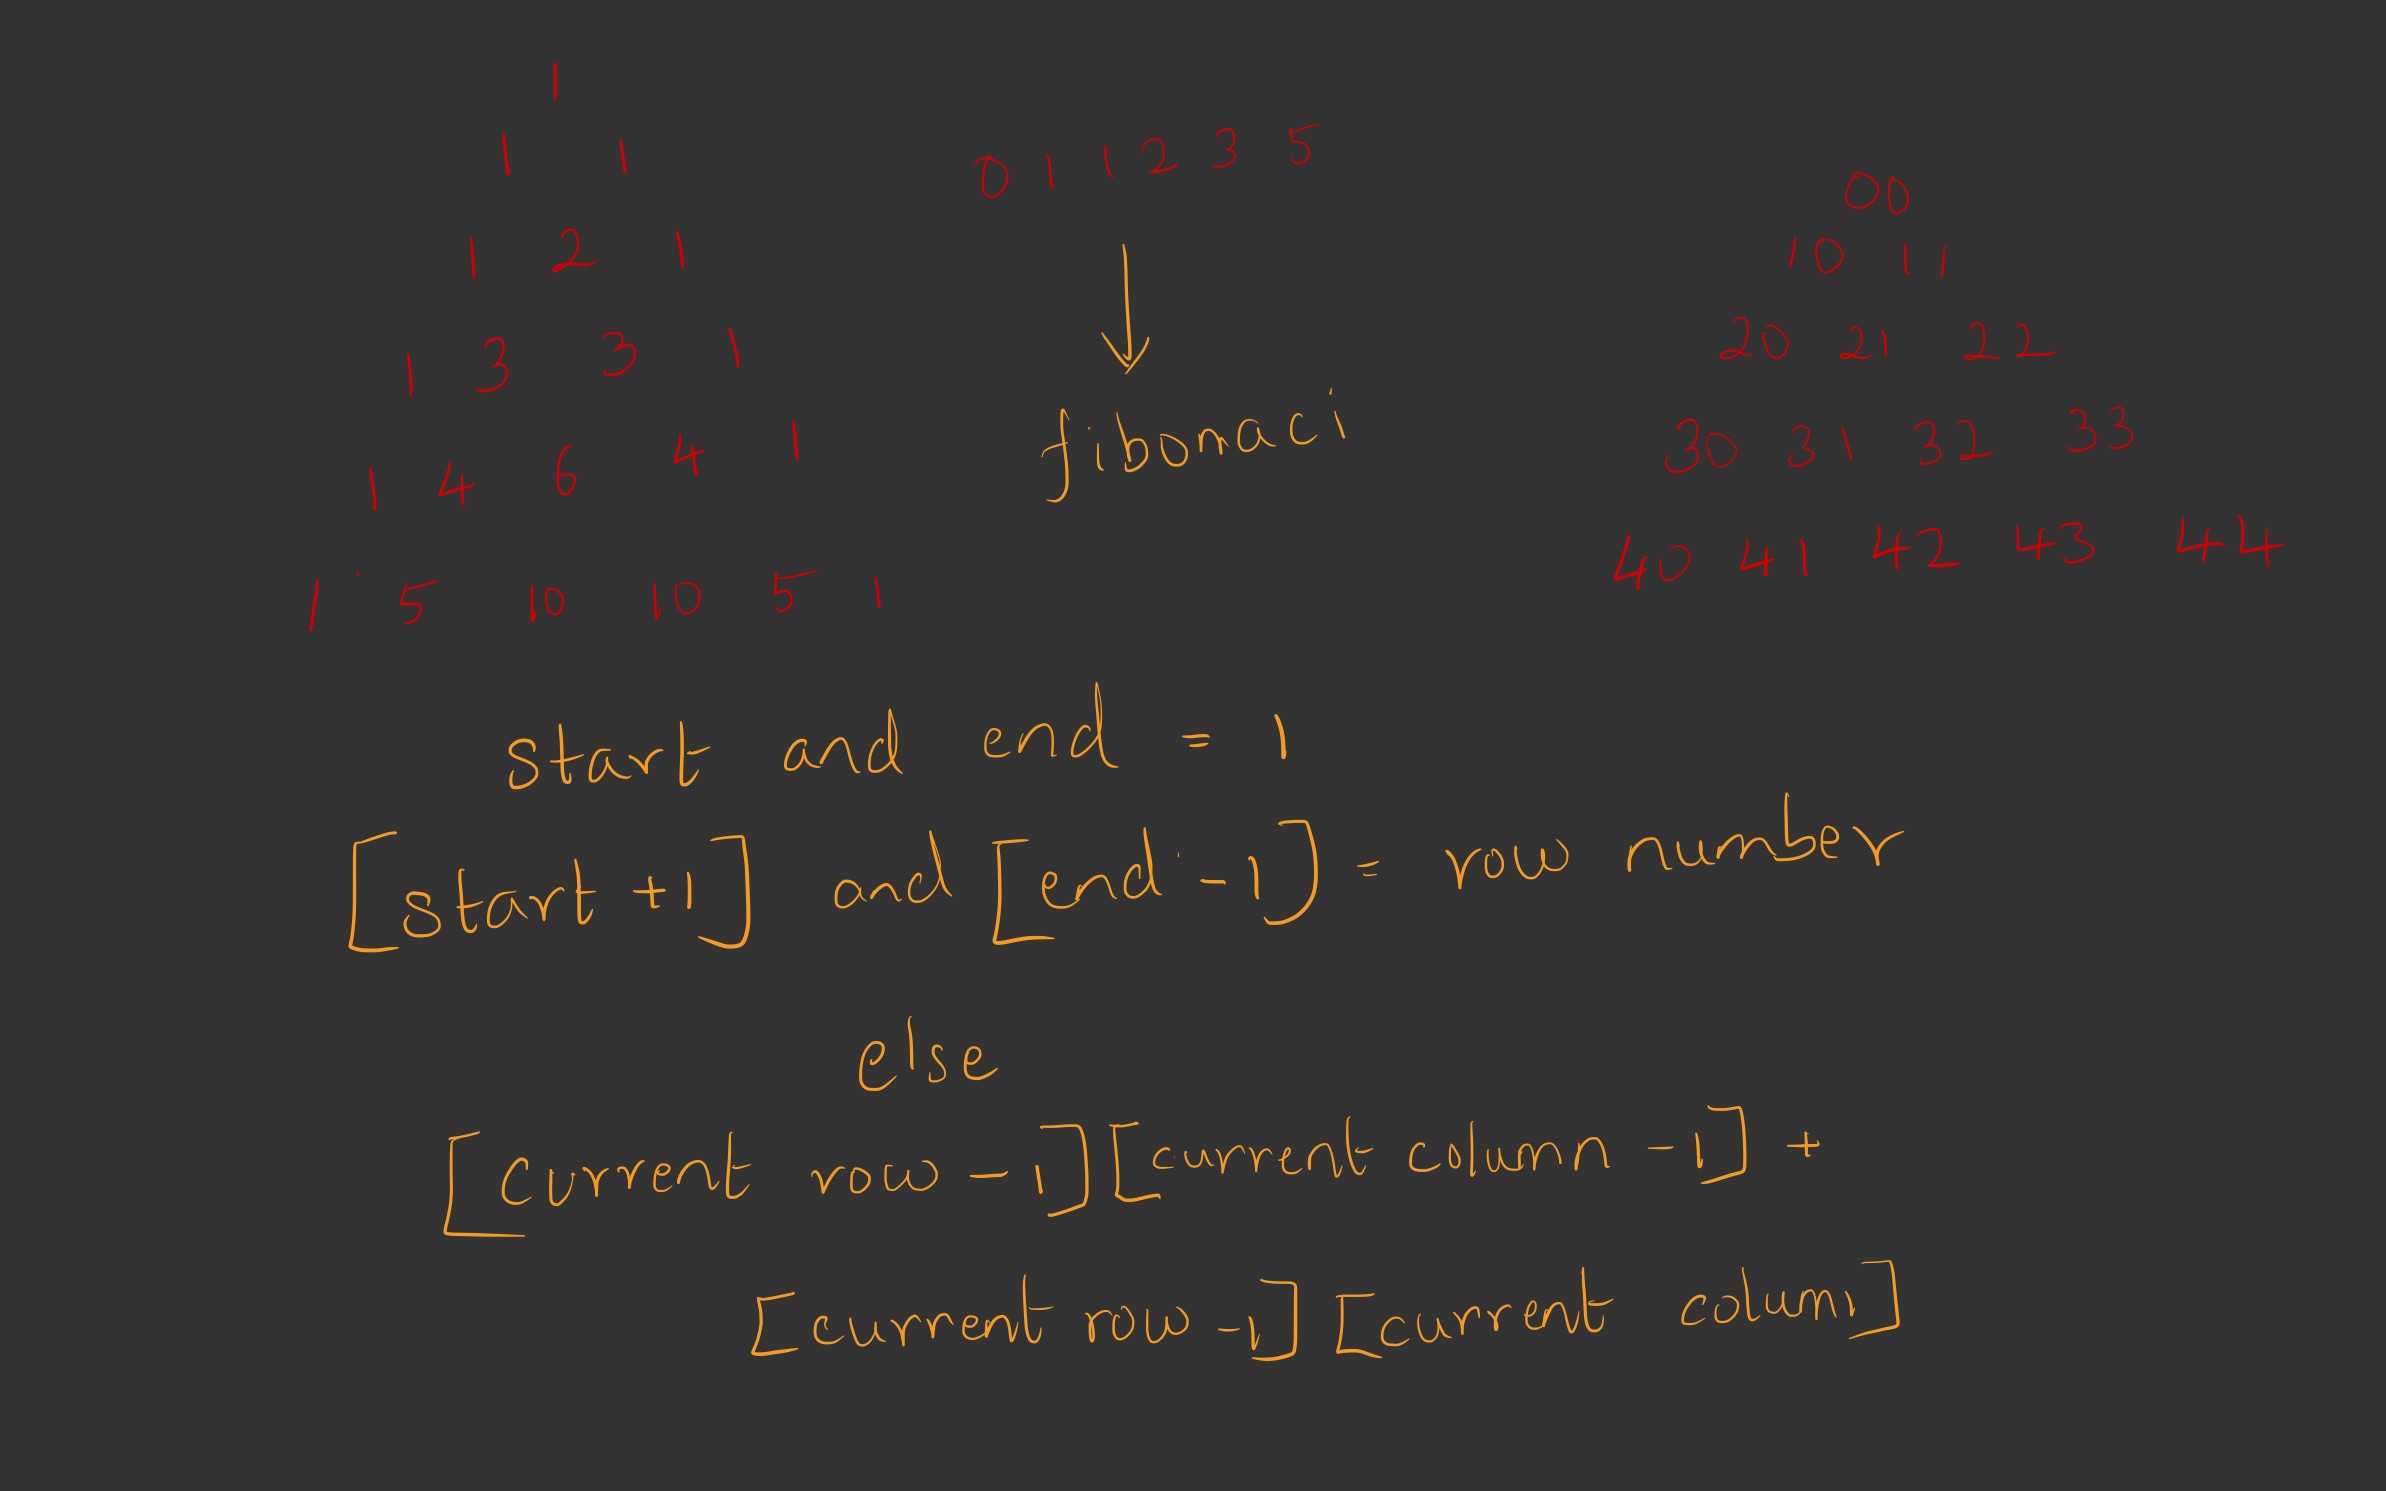 1
1 1
1 2 1
1 3 3 1
1 4 6 4 1
1 5 10 10 5 1
0 1 1 2 3 5
fibonaci
00
10 11
20 21 22
30 31 32 33
40 41 42 43 44
start and end = 1
[start +1] and [end -1] = row number
else
[current row -1][current column -1] +
[current row -1][current column]